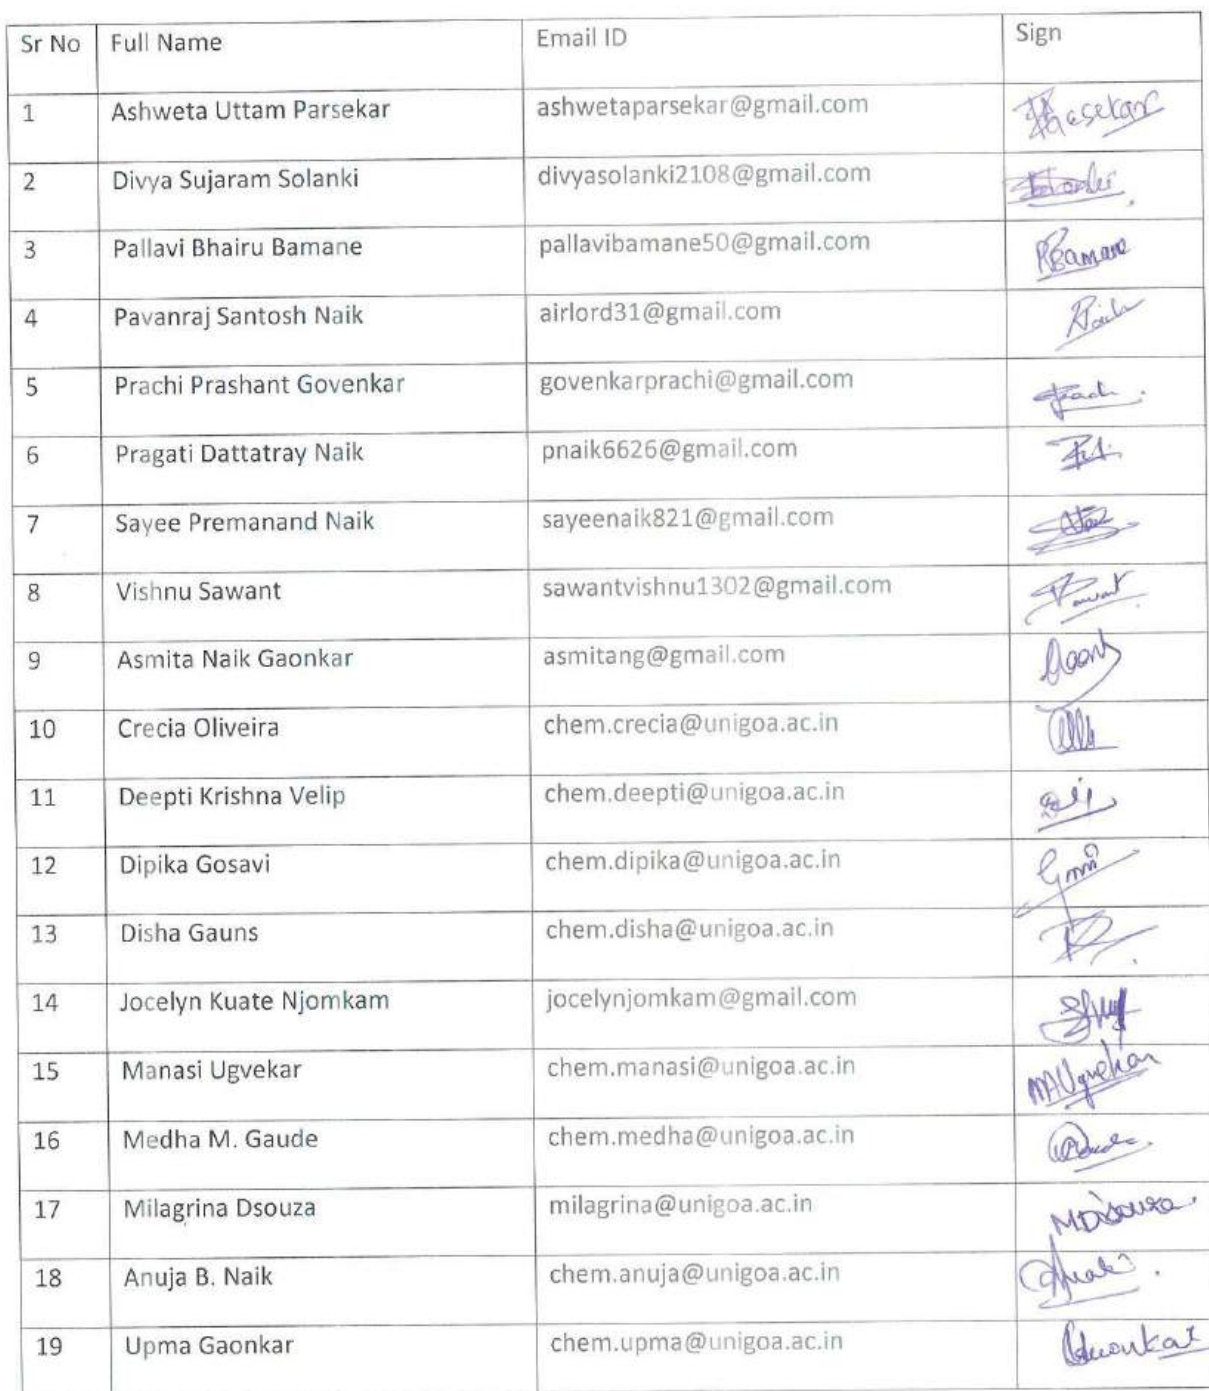 Sr No Full Name Email ID Sign
1 Ashweta Uttam Parsekar ashwetaparsekar@gmail.com
2 Divya Sujaram Solanki divyasolanki2108@gmail.com
3 Pallavi Bhairu Bamane pallavibamane50@gmail.com PBamane
4 Pavanraj Santosh Naik airlord31@gmail.com
5 Prachi Prashant Govenkar govenkarprachi@gmail.com
6 Pragati Dattatray Naik pnaik6626@gmail.com
7 Sayee Premanand Naik sayeenaik821@gmail.com
8 Vishnu Sawant sawantvishnu1302@gmail.com
9 Asmita Naik Gaonkar asmitang@gmail.com
10 Crecia Oliveira chem.crecia@unigoa.ac.in
11 Deepti Krishna Velip chem.deepti@unigoa.ac.in
12 Dipika Gosavi chem.dipika@unigoa.ac.in
13 Disha Gauns chem.disha@unigoa.ac.in
14 Jocelyn Kuate Njomkam jocelynjomkam@gmail.com
15 Manasi Ugvekar chem.manasi@unigoa.ac.in MAUgvekar
16 Medha M. Gaude chem.medha@unigoa.ac.in
17 Milagrina Dsouza milagrina@unigoa.ac.in MDsouza
18 Anuja B. Naik chem.anuja@unigoa.ac.in
19 Upma Gaonkar chem.upma@unigoa.ac.in